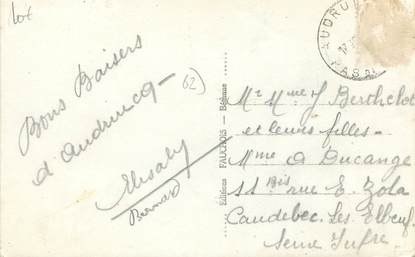 lot
AUDRU
PAS D
62
Bons Baisers
d'Audruicq -
Elisaby
Bernard
Editions FAUCHOIS - Béthune
Mr Mme J Berthelot
et leurs filles -
Mme A Ducange
11 bis rue E. Zola
Caudebec les Elbeuf
Seine Infre